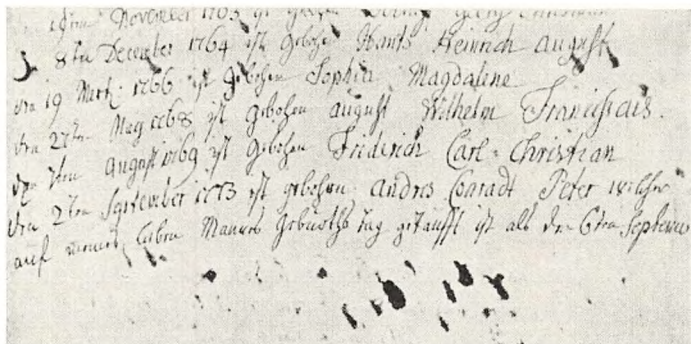 November 1763 ist gebohren Georg Christian
8ten December 1764 ist gebohr Hanß Heinrich August
den 19 Mertz 1766 ist gebohren Sophia Magdalene
den 27ten May 1768 ist gebohren August Wilhelm Franciscus.
den 7ten August 1769 ist gebohren Friderich Carl Christian
den 2ten September 1773 ist gebohren Andres Conradt Peter welcher
auf meines lieben Mannes Gebuhrts tag getaufft ist als den 6ten September